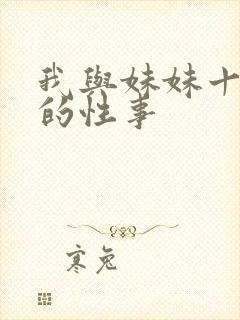 我與妹妹十
的性事
寒兔